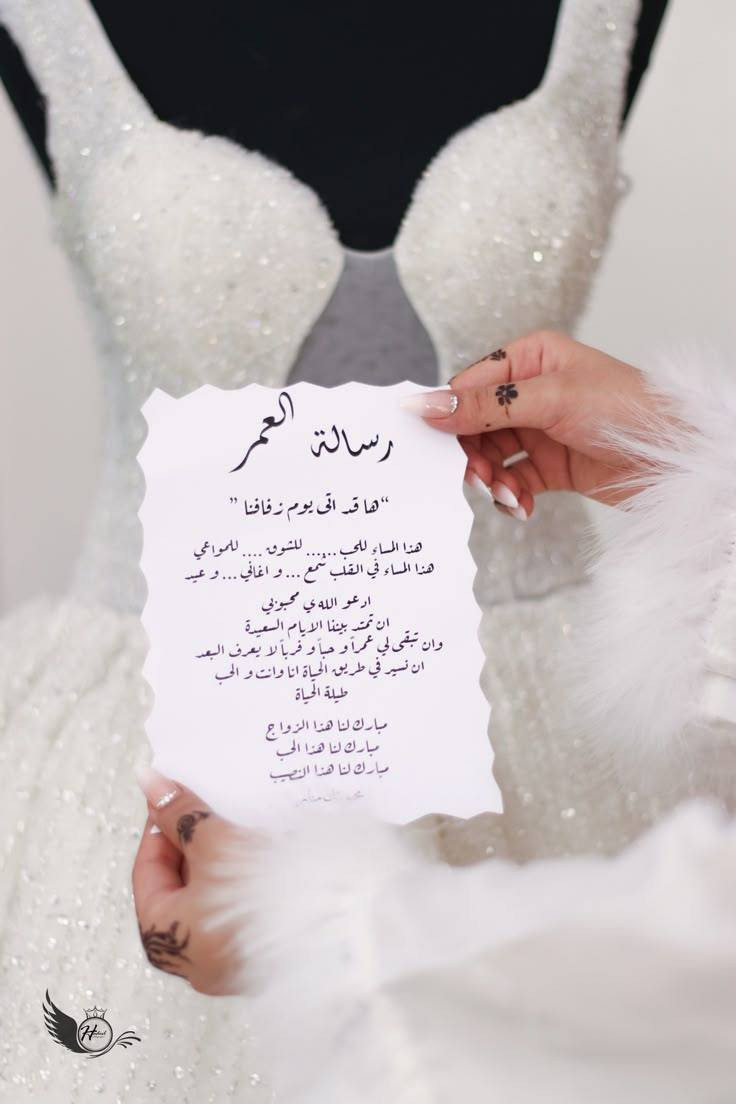 رسالة العمر
“ها قد اتى يوم زفافنا ”
هذا المساء للحب ...... للشوق .... للمواعي
هذا المساء في القلب شمع ... و اغاني ... و عيد
ادعو الله ي محبوبي
ان تمتد بيننا الايام السعيدة
وان تبقى لي عمراً و حباً و قرباً لا يعرف البعد
ان نسير في طريق الحياة انا وانت و الحب
طيلة الحياة
مبارك لنا هذا الزواج
مبارك لنا هذا الحب
مبارك لنا هذا النصيب